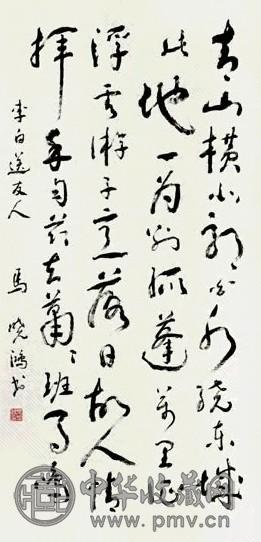 青山横北郭白水绕东城
此地一为别孤蓬万里征
浮云游子意落日故人情
挥手自兹去萧々班马鸣
李白送友人 馬晓鸿书
中华收藏网
www.pmv.cn